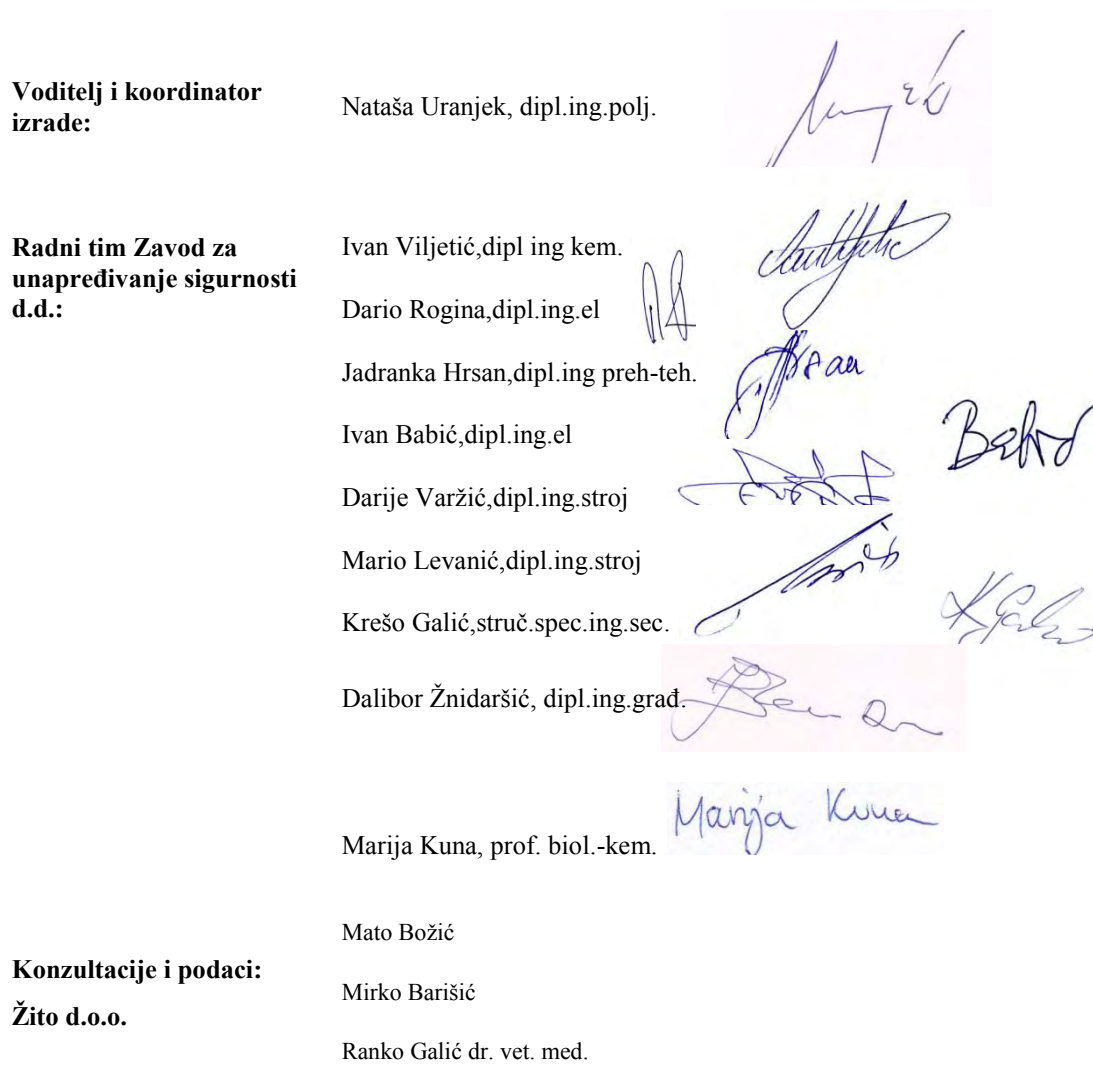 Voditelj i koordinator
izrade:
Nataša Uranjek, dipl.ing.polj.
Radni tim Zavod za
unapređivanje sigurnosti
d.d.:
Ivan Viljetić,dipl ing kem.
Dario Rogina,dipl.ing.el
Jadranka Hrsan,dipl.ing preh-teh.
Ivan Babić,dipl.ing.el
Darije Varžić,dipl.ing.stroj
Mario Levanić,dipl.ing.stroj
Krešo Galić,struč.spec.ing.sec.
Dalibor Žnidaršić, dipl.ing.građ.
Marija Kuna, prof. biol.-kem.
Marija Kuna
Konzultacije i podaci:
Žito d.o.o.
Mato Božić
Mirko Barišić
Ranko Galić dr. vet. med.